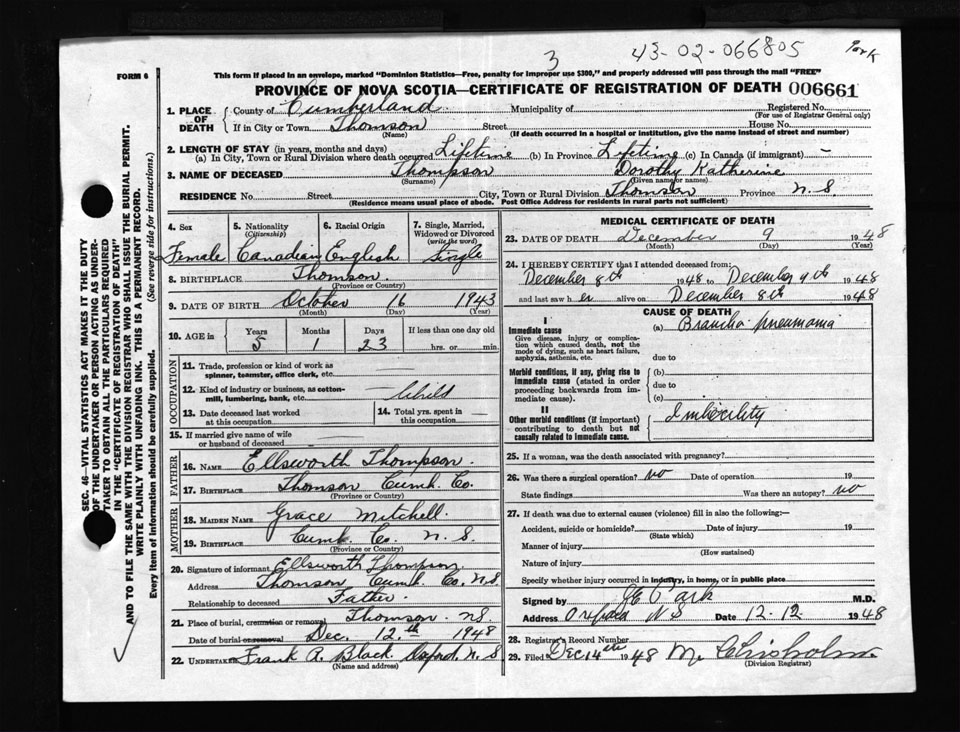 3 43-02-066805 Park
FORM 6
This form if placed in an envelope, marked "Dominion Statistics—Free, penalty for improper use $300," and properly addressed will pass through the mail "FREE"
PROVINCE OF NOVA SCOTIA—CERTIFICATE OF REGISTRATION OF DEATH 006661
1. PLACE OF DEATH County of Cumberland Municipality of Registered No.
(For use of Registrar General only)
If in City or Town Thomson Street House No.
(Name) (If death occurred in a hospital or institution, give the name instead of street and number)
2. LENGTH OF STAY (in years, months and days)
(a) In City, Town or Rural Division where death occurred Lifetime (b) In Province Lifetime (c) In Canada (if immigrant) —
3. NAME OF DECEASED Thompson Dorothy Katherine
(Surname) (Given name or names)
RESIDENCE No. Street City, Town or Rural Division Thomson Province N.S
(Residence means usual place of abode. Post Office Address for residents in rural parts not sufficient)
4. Sex 5. Nationality (Citizenship) 6. Racial Origin 7. Single, Married, Widowed or Divorced (write the word)
Female Canadian English Single
8. BIRTHPLACE Thomson.
(Province or Country)
9. DATE OF BIRTH October 16 1943
(Month) (Day) (Year)
10. AGE in Years Months Days If less than one day old
5 1 23 hrs. or min.
OCCUPATION
11. Trade, profession or kind of work as spinner, teamster, office clerk, etc.
12. Kind of industry or business, as cotton-mill, lumbering, bank, etc. Child
13. Date deceased last worked at this occupation 14. Total yrs. spent in this occupation
15. If married give name of wife or husband of deceased
FATHER
16. NAME Ellsworth Thompson.
17. BIRTHPLACE Thomson Cumb. Co.
(Province or Country)
MOTHER
18. MAIDEN NAME Grace Mitchell.
19. BIRTHPLACE Cumb. Co. N. S.
(Province or Country)
20. Signature of informant Ellsworth Thompson.
Address Thomson Cumb. Co. N.S
Relationship to deceased Father.
21. Place of burial, cremation or removal Thomson. NS.
Date of burial or removal Dec. 12.th 1948
22. UNDERTAKER Frank A. Black. Oxford. N. S
(Name and address)
MEDICAL CERTIFICATE OF DEATH
23. DATE OF DEATH December 9 1948
(Month) (Day) (Year)
24. I HEREBY CERTIFY that I attended deceased from:
December 8th 1948 to December 9th 1948
and last saw h er alive on December 8th 1948
CAUSE OF DEATH
I
Immediate cause (a) Broncho-pneumonia
Give disease, injury or complication which caused death, not the mode of dying, such as heart failure, asphyxia, asthenia, etc. due to
Morbid conditions, if any, giving rise to immediate cause (stated in order proceeding backwards from immediate cause). (b)
due to
(c)
II
Other morbid conditions (if important) contributing to death but not causally related to immediate cause. Imbecility
25. If a woman, was the death associated with pregnancy?
26. Was there a surgical operation? no Date of operation 19
State findings Was there an autopsy? no
27. If death was due to external causes (violence) fill in also the following:—
Accident, suicide or homicide? Date of injury 19
(State which)
Manner of injury
(How sustained)
Nature of injury
Specify whether injury occurred in industry, in home, or in public place
Signed by Park M.D.
Address Oxford N S Date 12-12 1948
28. Registrar's Record Number
29. Filed Dec 14th 1948 M. Chisholm.
(Division Registrar)
SEC. 46—VITAL STATISTICS ACT MAKES IT THE DUTY
OF THE UNDERTAKER OR PERSON ACTING AS UNDER-
TAKER TO OBTAIN ALL THE PARTICULARS REQUIRED
IN THE "CERTIFICATE OF REGISTRATION OF DEATH"
AND TO FILE THE SAME WITH THE DIVISION REGISTRAR WHO SHALL ISSUE THE BURIAL PERMIT.
WRITE PLAINLY WITH UNFADING INK. THIS IS A PERMANENT RECORD.
Every item of information should be carefully supplied. (See reverse side for instructions.)